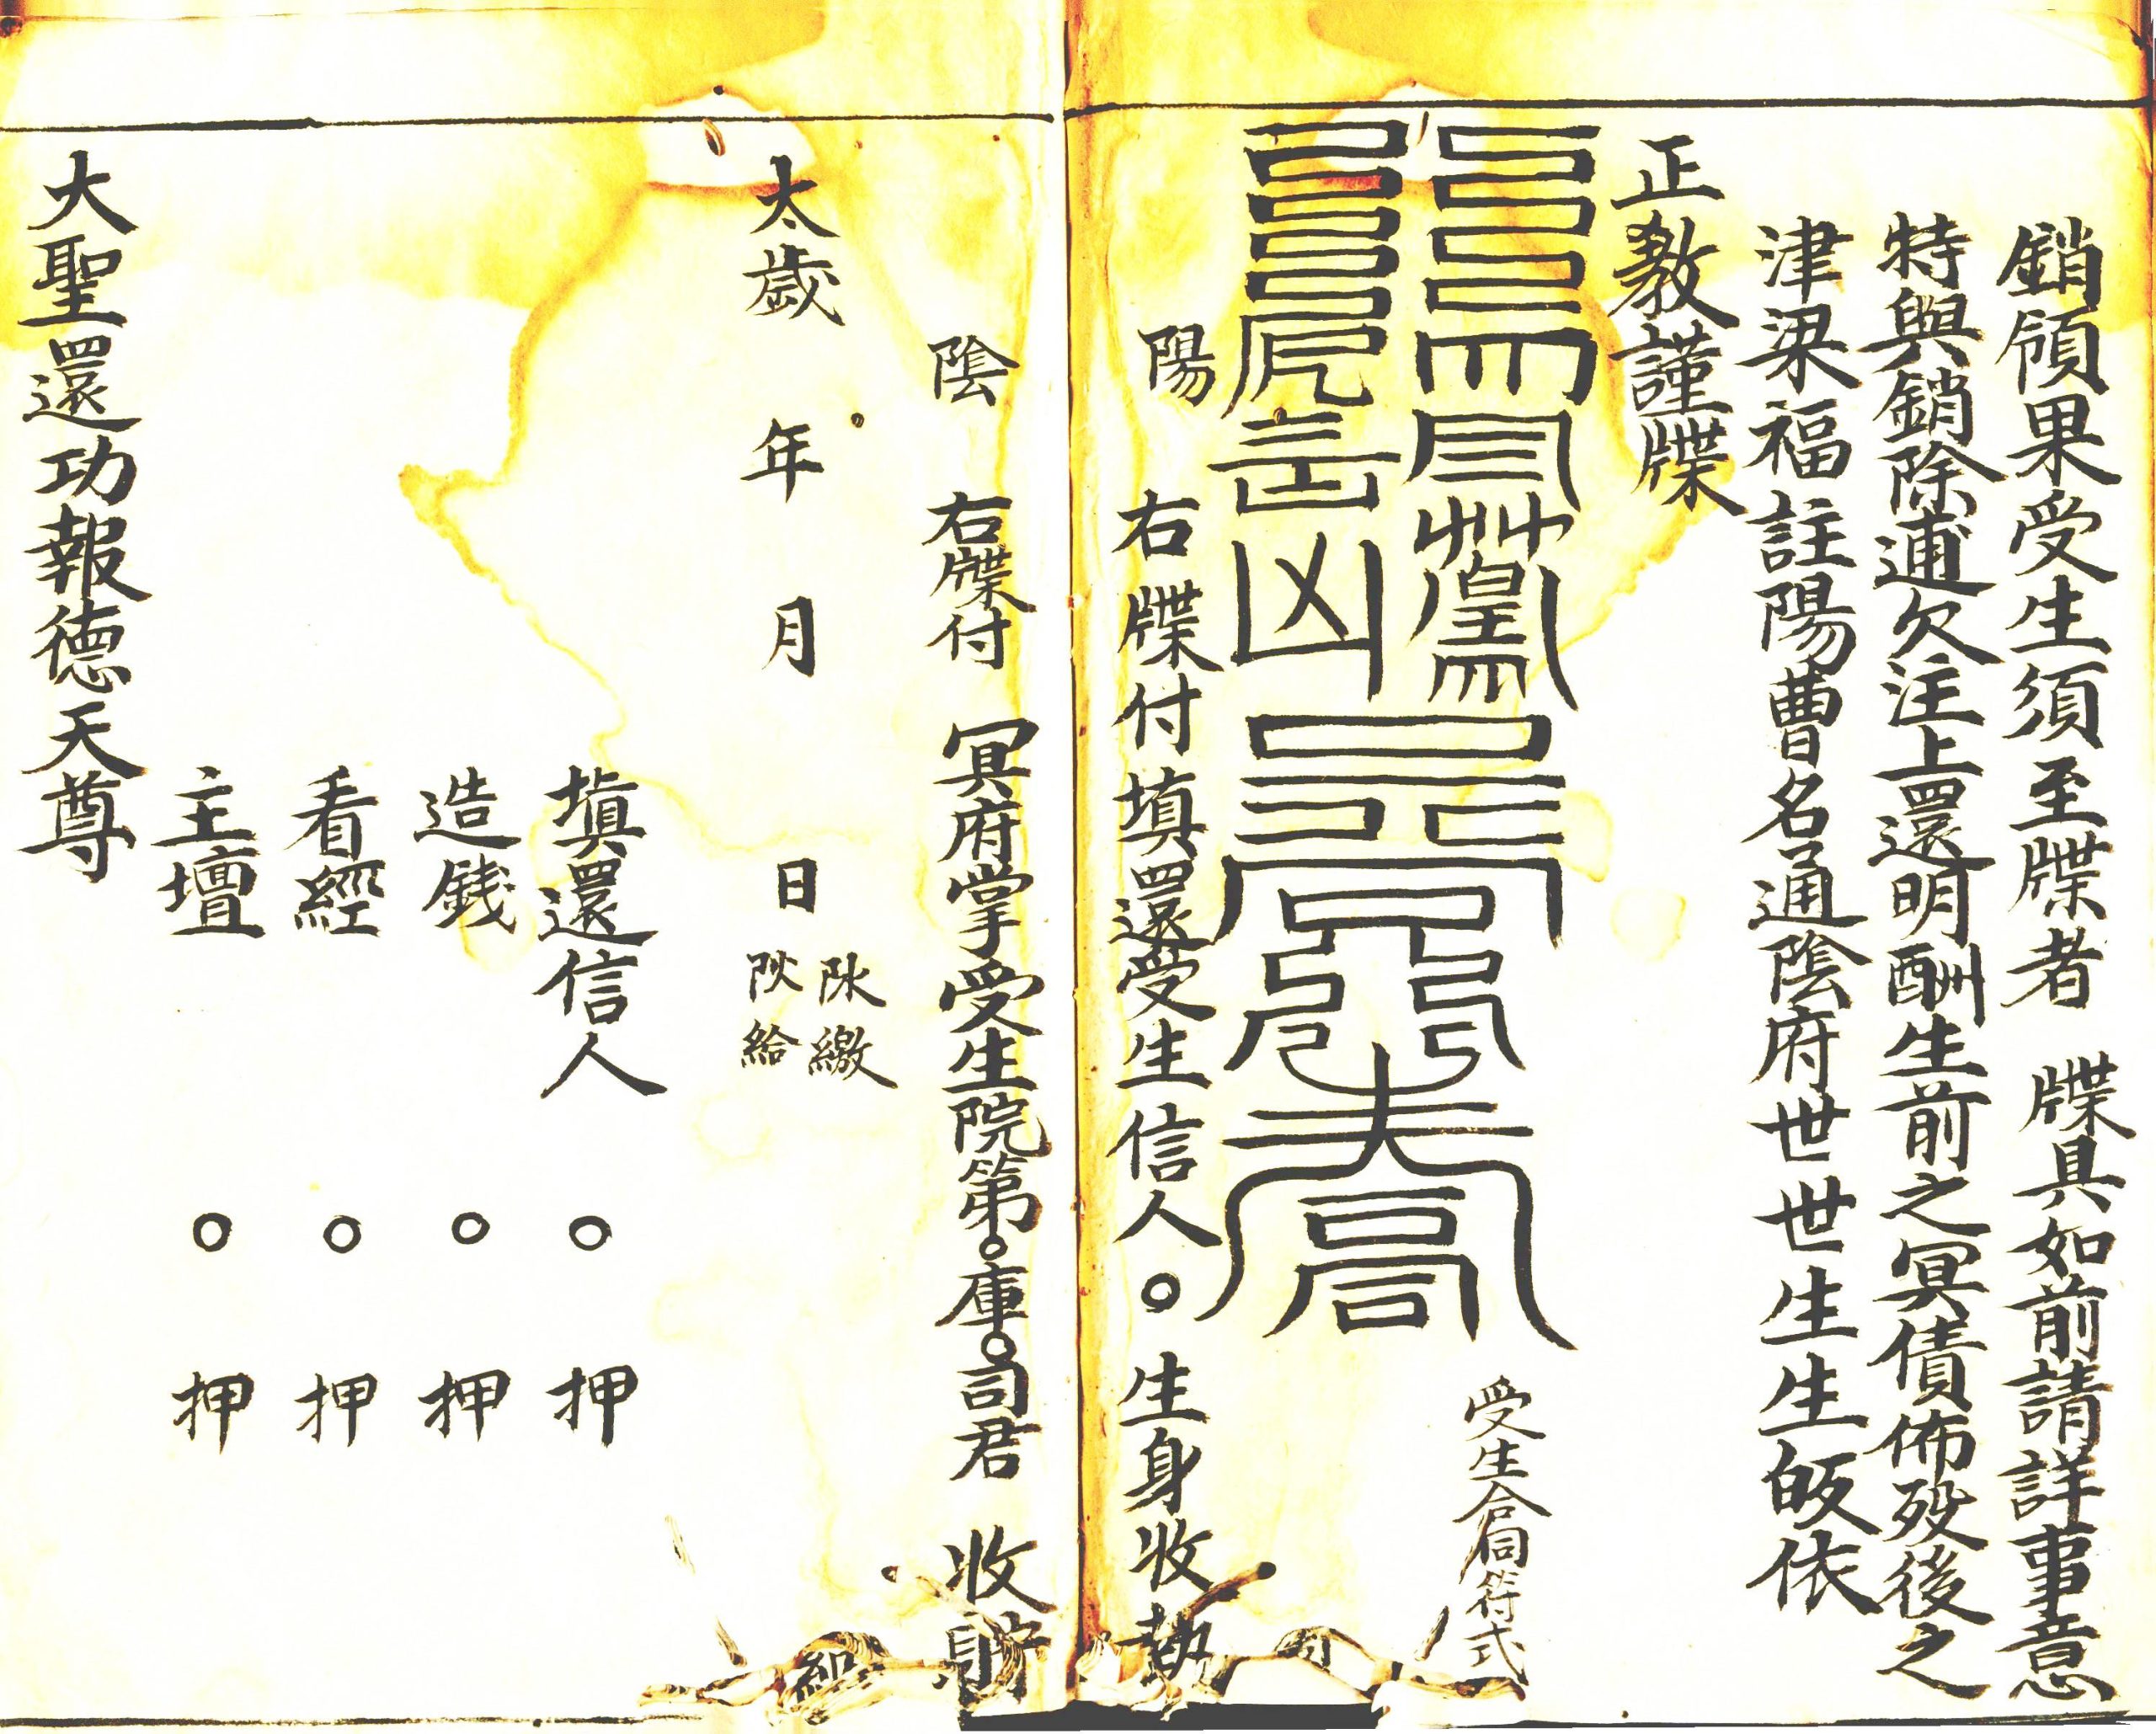 銷領果受生須至牒者　牒具如前請詳事意
特與銷除逋欠注上還明酬生前之冥債佈歿後之
津梁福註陽曹名通陰府世世生生皈依
正教謹牒
受生合同符式
陽　右牒付填還受生信人〇生身收執
陰　右牒付　冥府掌受生院第〇庫〇司君　收貯
太歲　年　月　日
繳
給
填還信人　〇　押
造錢　〇　押
看經　〇　押
主壇　〇　押
大聖還功報德天尊